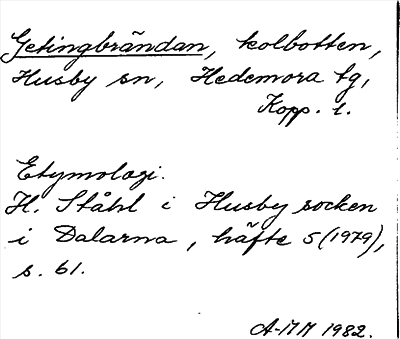 Getingbrändan, kolbotten,
Husby sn, Hedemora tg,
Kopp. l.
Etymologi.
H. Ståhl i Husby socken
i Dalarna, häfte 5 (1979),
s. 61.
A-MM 1982.